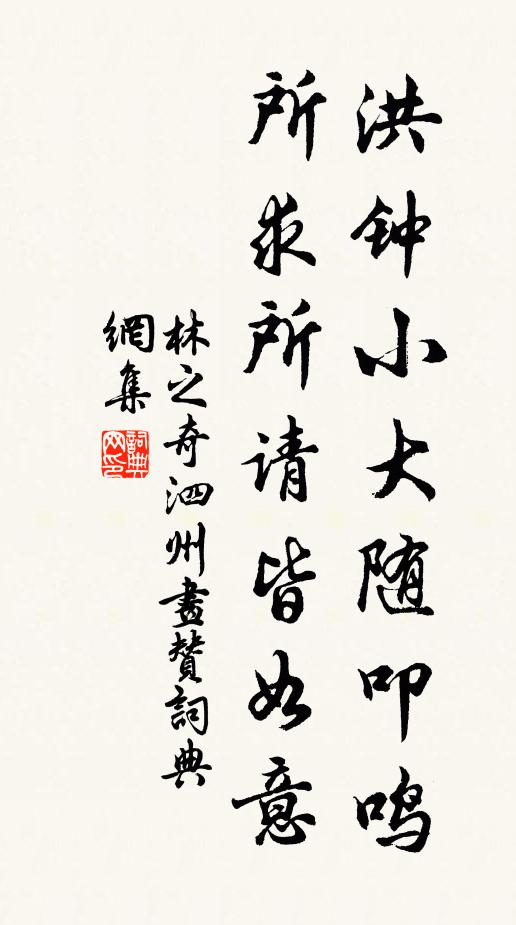 洪钟小大随叩鸣
所求所请皆如意
林之奇泗州畫赞詞典
網集
詞典网印